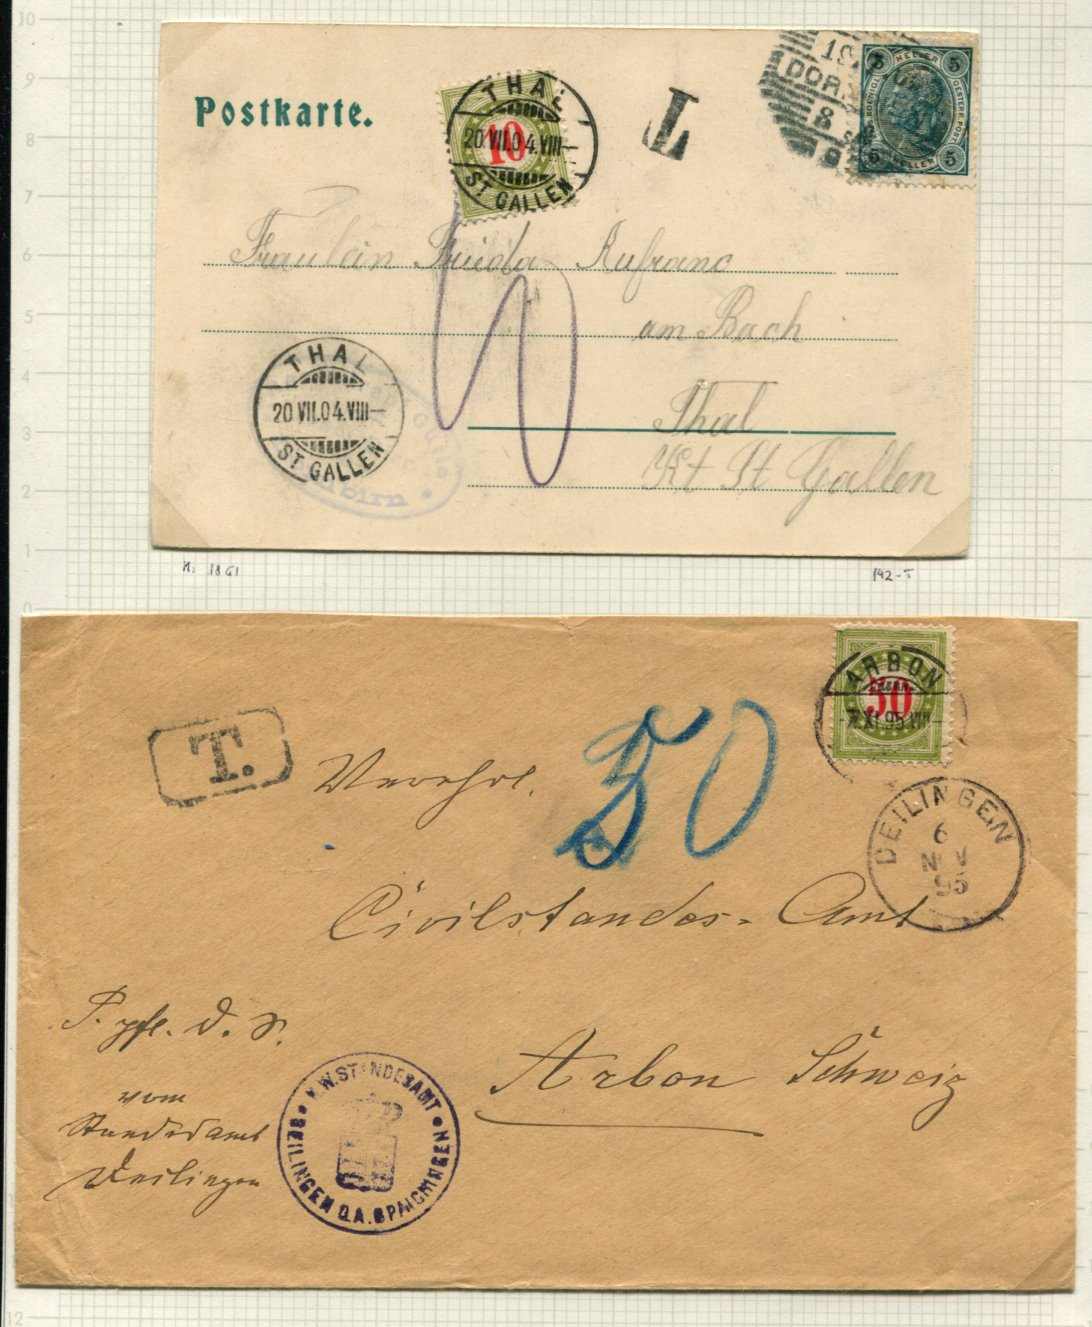 10
9
8
7
6
5
4
3
2
1
0
12
Postkarte.
THAL
20.VII.04.VIII
10
ST GALLEN
T
DOR
8
5 HELLER 5
5 HELLER 5
Fräulein Frieda Rufranc
am Bach
Thal
Kt St Gallen
THAL
20 VII.04.VIII
ST GALLEN
142-T
T.
50
ARBON
50
XI.95.VIII
DEILINGEN
6
NOV
95
Verehrl.
Civilstandes-Amt
Arbon Schweiz
vom
Standesamt
Deilingen
K.W.STANDESAMT
DEILINGEN O.A.SPAICHINGEN